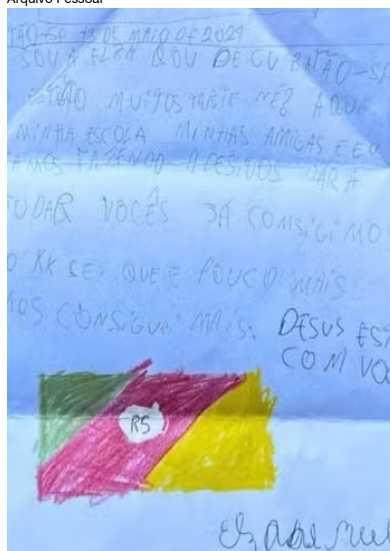 Arquivo Pessoal
TÃO-SP 13 DE MAIO DE 2024
SOU A ELZA SOU DE CUBATÃO-SP
ESTÃO MUITOS TRISTE NÉ? AQUI
MINHA ESCOLA MINHAS AMIGAS E EU
FAZENDO ADESIVOS PARA
VOCÊS JÁ CONSIGIMO
SEI QUE E POUCO MAIS
CONSIGUI MAIS. DESUS EST
COM VO
RS